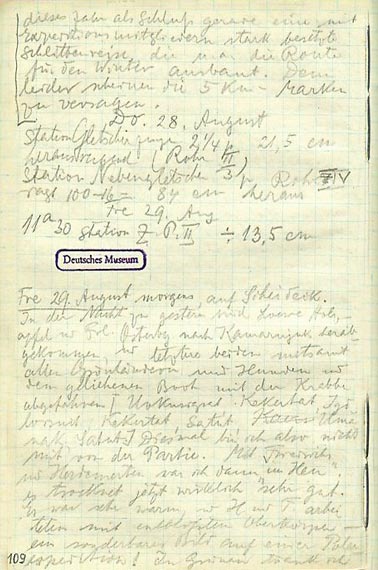 dieses Jahr als Schluß gerade eine mit
Expeditionsmitgliedern stark besetzte
Schlittenreise, die u. a. die Route
für den Winter ausbaut. Denn
leider scheinen die 5 Km-Marken
zu versagen.
Do. 28. August
Station Gletscher 2 1/4 p 21,5 cm
herausragend (Rohr II)
Station Nebengletscher 3 p Rohr IV
ragt 100-16 = 84 cm heraus
Fre 29. Aug
11 a 30 Station Z P. II ÷ 13,5 cm
Deutsches Museum
Fre 29. August morgens, auf Scheideck.
In der Nacht zu gestern sind Loewe, Holz-
apfel u. Frl. nach Kamarujuk herab-
gekommen, u. letztere beiden mitsamt
allen Grönländern und Hunden und
dem geliehenen Boot mit der Krabbe
abgefahren [Uvkusigsat Kekertat Igd-
lorsuit, Kekertat, Satut Uma-
nak, Satut]. Diesmal bin ich also nicht
mit von der Partie. Mit
und Herdemerten war ich dann im "Heu"
es trocknet jetzt wirklich sehr gut.
Es war sehr warm, u. H und F. arbei-
teten mit entblößtem Oberkörper —
ein sonderbares Bild auf einer Polar-
expedition! In Grönau trank ich
109